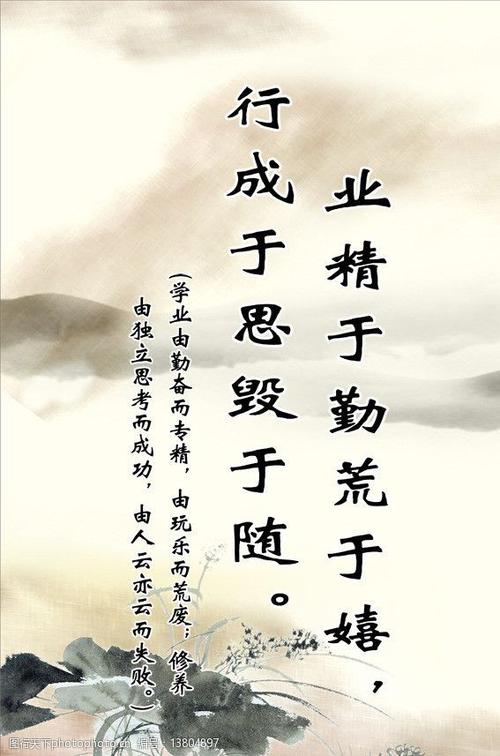 业精于勤荒于嬉，
行成于思毁于随。
(学业由勤奋而专精，由玩乐而荒废；修养
由独立思考而成功，由人云亦云而失败。)
图行天下 photophoto.cn 编号：13804897